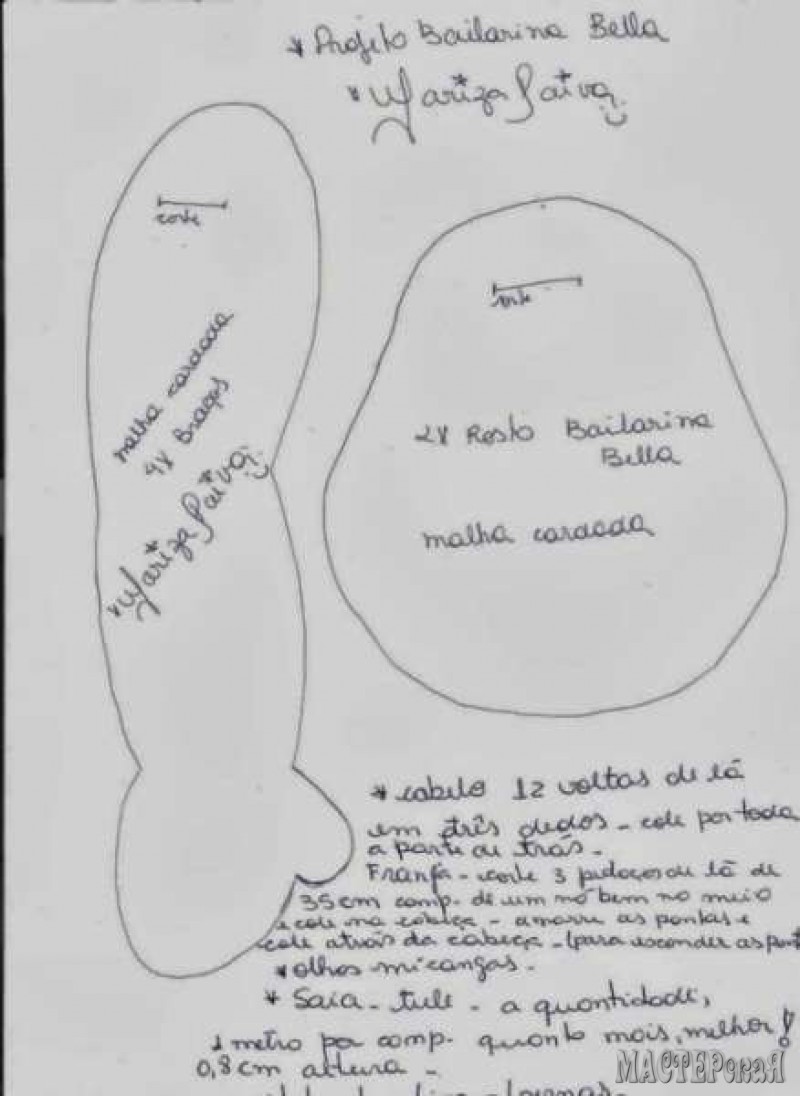 * Projeto Bailarina Bella
* Mariza Paiva
corte
malha cardada
4x Braços
* Mariza Paiva
corte
2x Rosto Bailarina
Bella
malha cardada
* cabelo 12 voltas de lã
em três dedos - cole por toda
a parte de trás -
Franja - corte 3 pedaços de lã de
35cm comp. dê um nó bem no meio
e cole na cabeça - amarre as pontas e
cole atrás da cabeça - (para esconder as pont
* olhos miçangas -
* Saia - tule - a quantidade,
1 metro por comp. quanto mais, melhor!
0,8cm altura -
МАСТЕРскаЯ